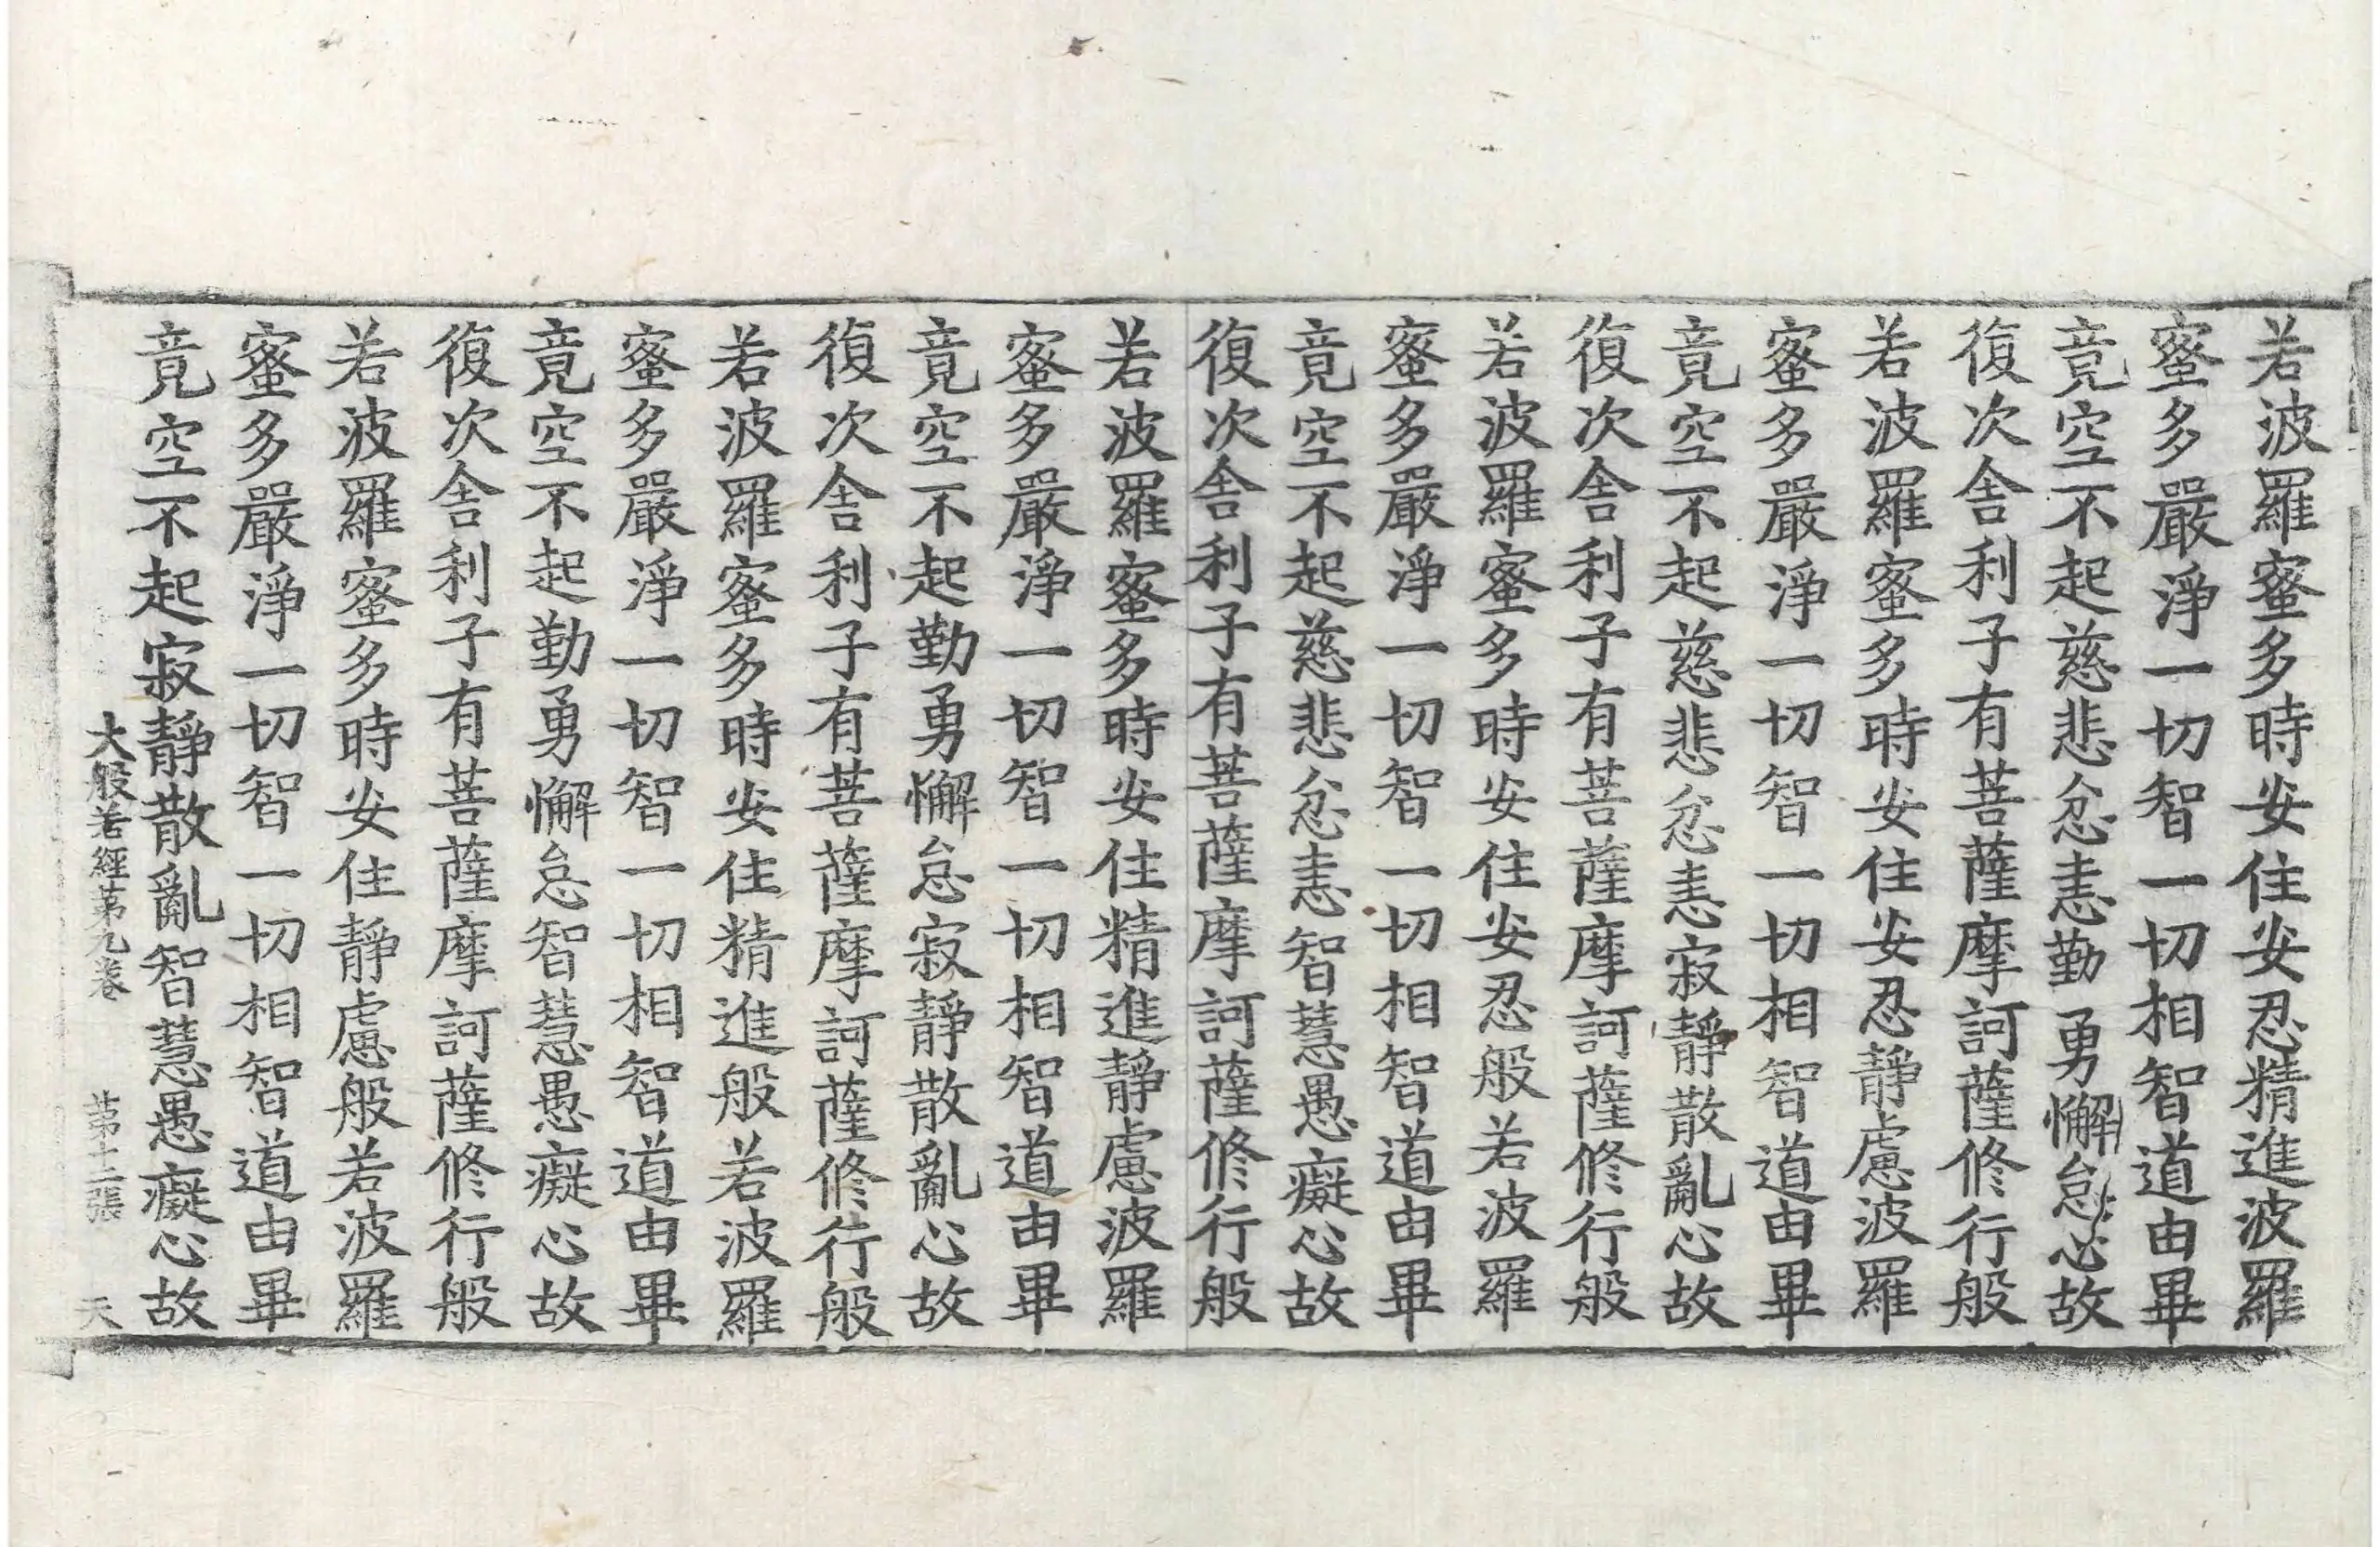 若波羅蜜多時安住安忍精進波羅
蜜多嚴淨一切智一切相智道由畢
竟空不起慈悲忿恚勤勇懈怠心故
復次舍利子有菩薩摩訶薩修行般
若波羅蜜多時安住安忍靜慮波羅
蜜多嚴淨一切智一切相智道由畢
竟空不起慈悲忿恚寂靜散亂心故
復次舍利子有菩薩摩訶薩修行般
若波羅蜜多時安住安忍般若波羅
蜜多嚴淨一切智一切相智道由畢
竟空不起慈悲忿恚智慧愚癡心故
復次舍利子有菩薩摩訶薩修行般
若波羅蜜多時安住精進靜慮波羅
蜜多嚴淨一切智一切相智道由畢
竟空不起勤勇懈怠寂靜散亂心故
復次舍利子有菩薩摩訶薩修行般
若波羅蜜多時安住精進般若波羅
蜜多嚴淨一切智一切相智道由畢
竟空不起勤勇懈怠智慧愚癡心故
復次舍利子有菩薩摩訶薩修行般
若波羅蜜多時安住靜慮般若波羅
蜜多嚴淨一切智一切相智道由畢
竟空不起寂靜散亂智慧愚癡心故
大般若經第九卷 第十二張 天